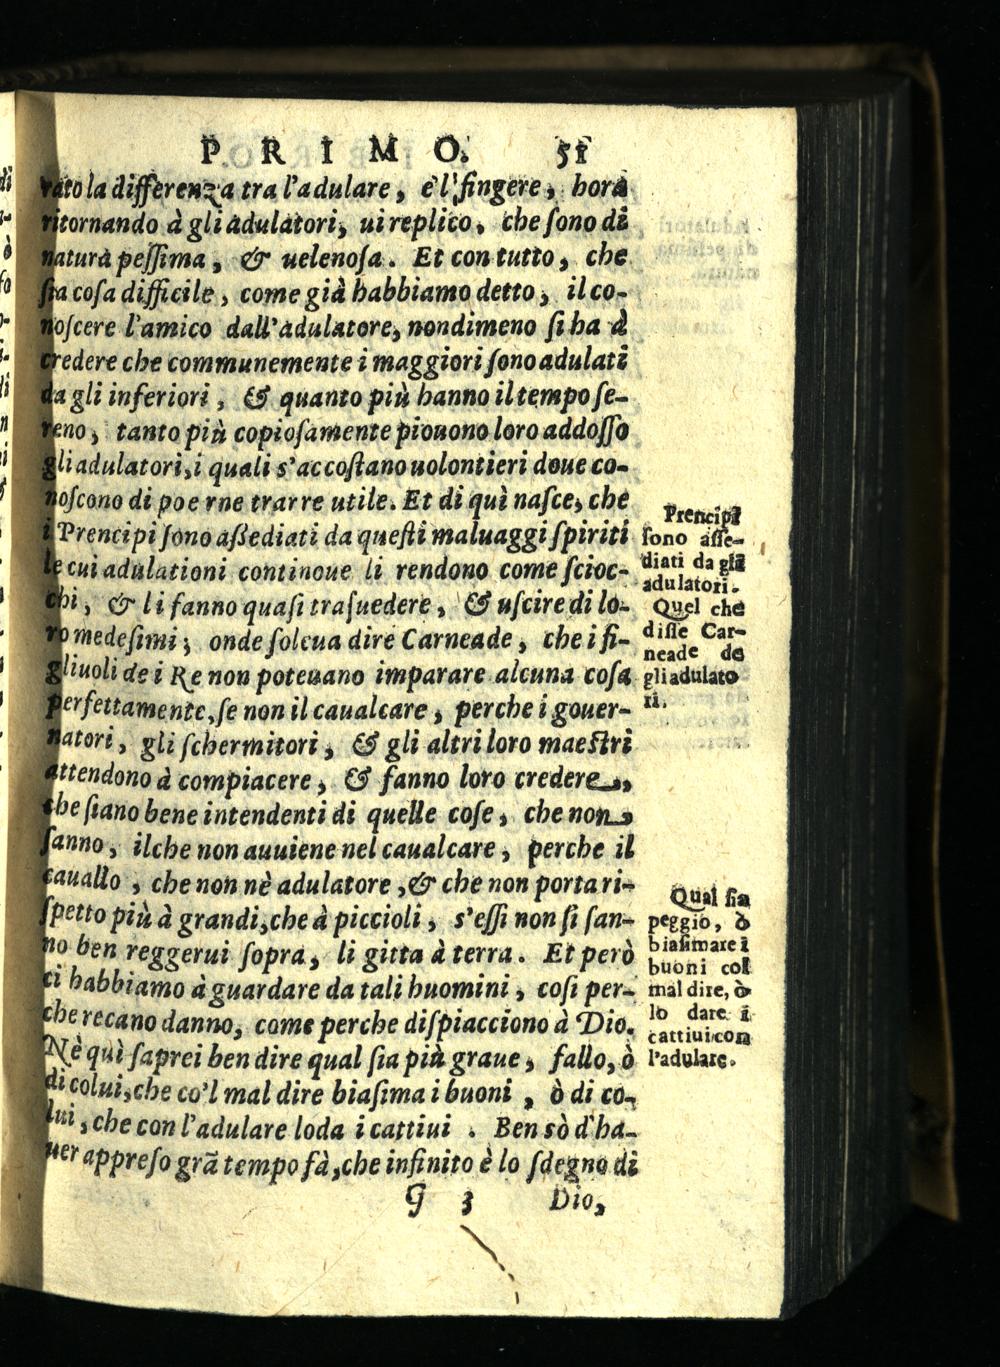 P R I M O. 51
rato la differenza tra l'adulare, e l'fingere, hora
ritornando à gli adulatori, ui replico, che ſono di
natura peſſima, & uelenoſa. Et con tutto, che
ſia coſa difficile, come già habbiamo detto, il co-
noſcere l'amico dall'adulatore, nondimeno ſi ha à
credere che communemente i maggiori ſono adulati
da gli inferiori, & quanto più hanno il tempo ſe-
reno, tanto più copioſamente piouono loro addoſſo
gli adulatori, i quali s'accoſtano uolontieri doue co-
noſcono di poe rne trarre utile. Et di quì naſce, che
i Prencipi ſono aßediati da queſti maluaggi ſpiriti
le cui adulationi continoue li rendono come ſcioc-
chi, & li fanno quaſi traſuedere, & uſcire di lo-
ro medeſimi; onde ſoleua dire Carneade, che i fi-
gliuoli de i Re non poteuano imparare alcuna coſa
perfettamente, ſe non il caualcare, perche i gouer-
natori, gli ſchermitori, & gli altri loro maeſtri
attendono à compiacere, & fanno loro credere,
che ſiano bene intendenti di quelle coſe, che non
ſanno, ilche non auuiene nel caualcare, perche il
cauallo, che non nè adulatore, & che non porta ri-
ſpetto più à grandi, che à piccioli, s'eſſi non ſi ſan-
no ben reggerui ſopra, li gitta à terra. Et però
ci habbiamo à guardare da tali huomini, coſi per-
che recano danno, come perche diſpiacciono à Dio.
Nè quì ſaprei ben dire qual ſia più graue, fallo, ò
di colui, che co'l mal dire biaſima i buoni, ò di co-
lui, che con l'adulare loda i cattiui. Ben sò d'ha-
uer appreſo grā tempo fà, che infinito è lo ſdegno di
G 3 Dio,
Prencipi
ſono aſſe-
diati da gli
adulatori.
Quel che
diſſe Car-
neade de
gli adulato
ri.
Qual ſia
peggio, ò
biaſimare i
buoni col
mal dire, ò
lo dare i
cattiui con
l'adulare.